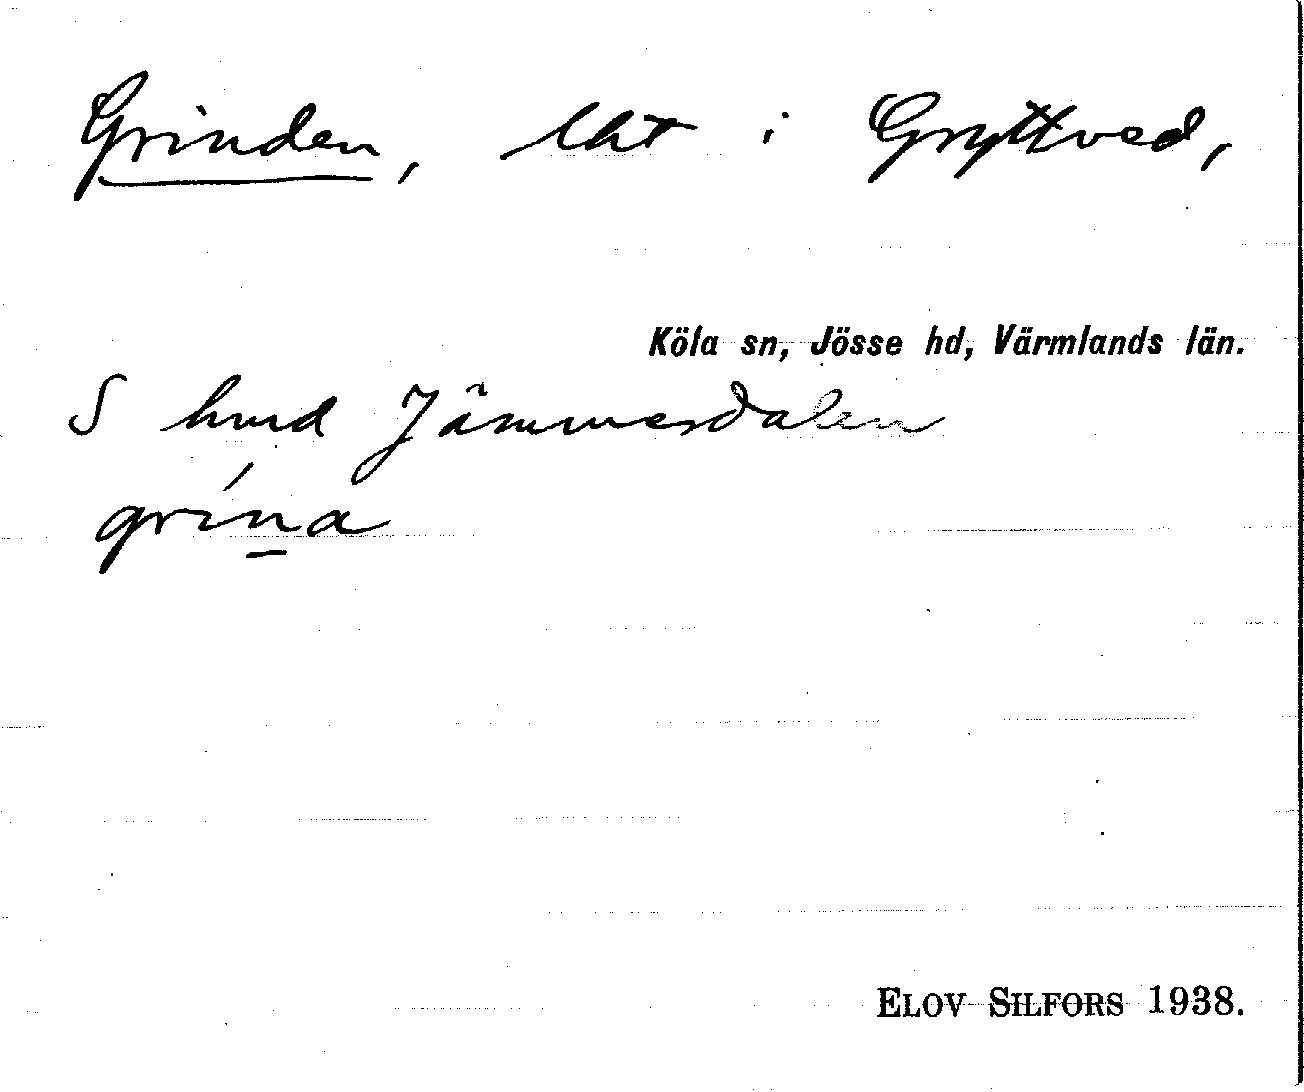 Grinden, lht i Gryttved,
Köla sn, Jösse hd, Värmlands län.
S hmd Jämmerdalen
grína
ELOV SILFORS 1938.